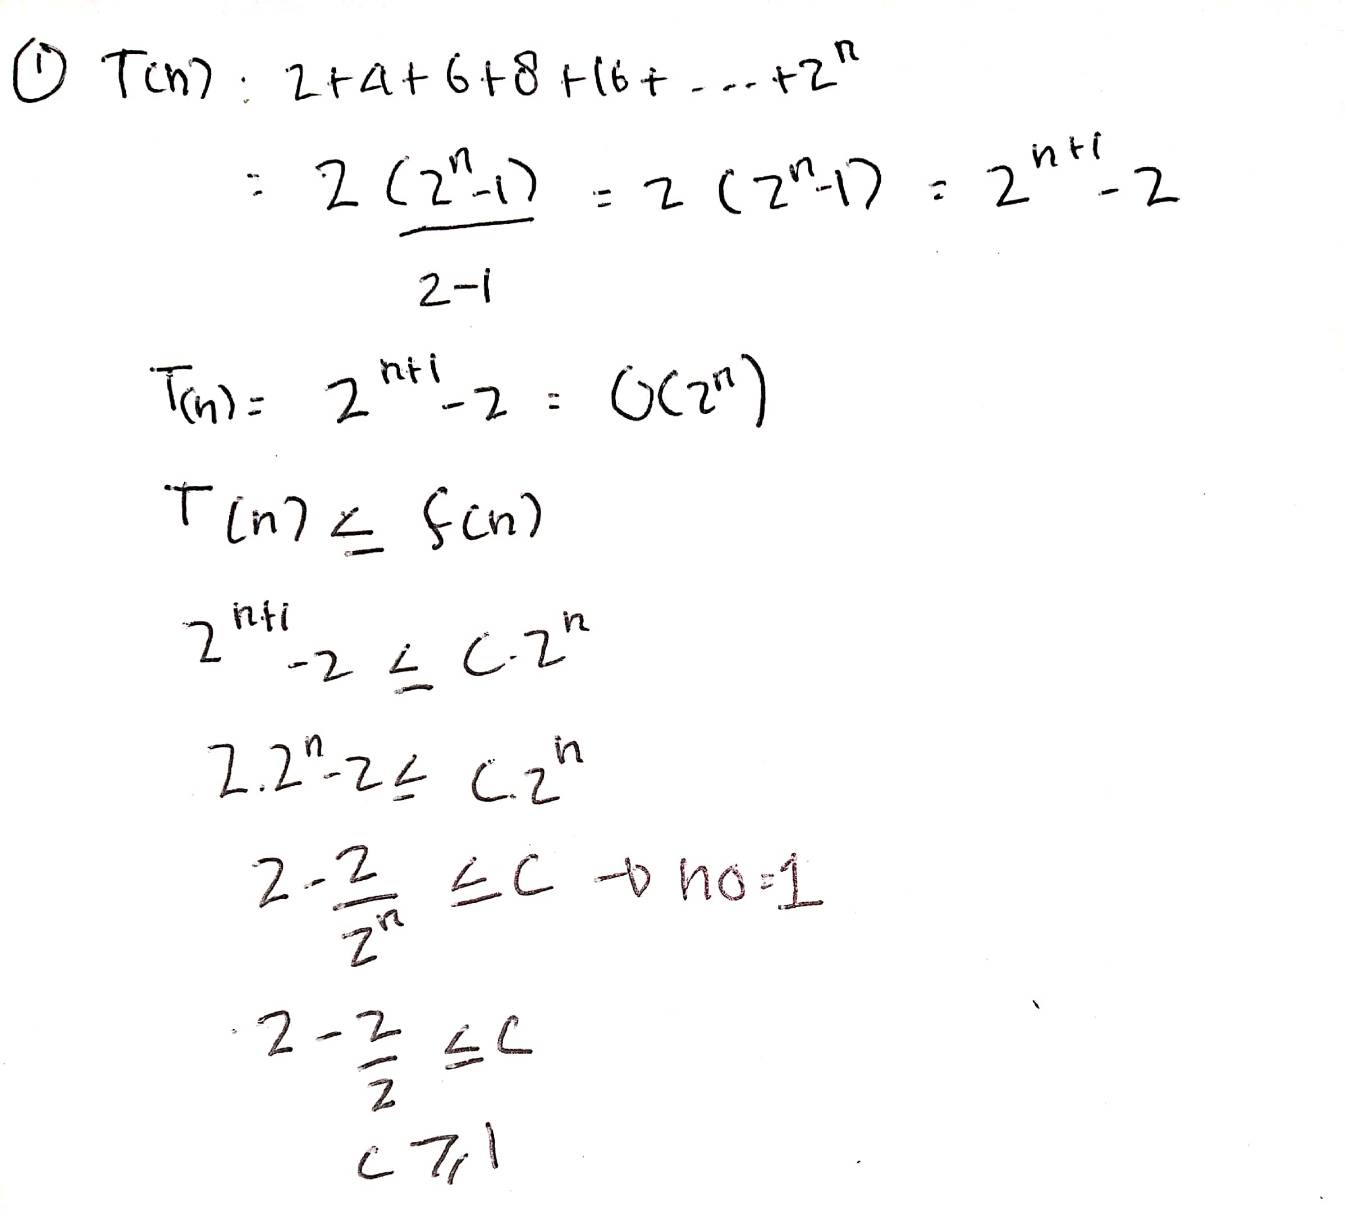 ① T(n) : 2+4+6+8+16+ ...+2ⁿ
= 2 (2ⁿ-1) / 2-1 = 2 (2ⁿ-1) = 2ⁿ⁺¹-2
T(n) = 2ⁿ⁺¹-2 = O(2ⁿ)
T(n) ≤ f(n)
2ⁿ⁺¹-2 ≤ C.2ⁿ
2.2ⁿ-2 ≤ C.2ⁿ
2-2/2ⁿ ≤ C → no=1
2-2/2 ≤ C
C ≥ 1